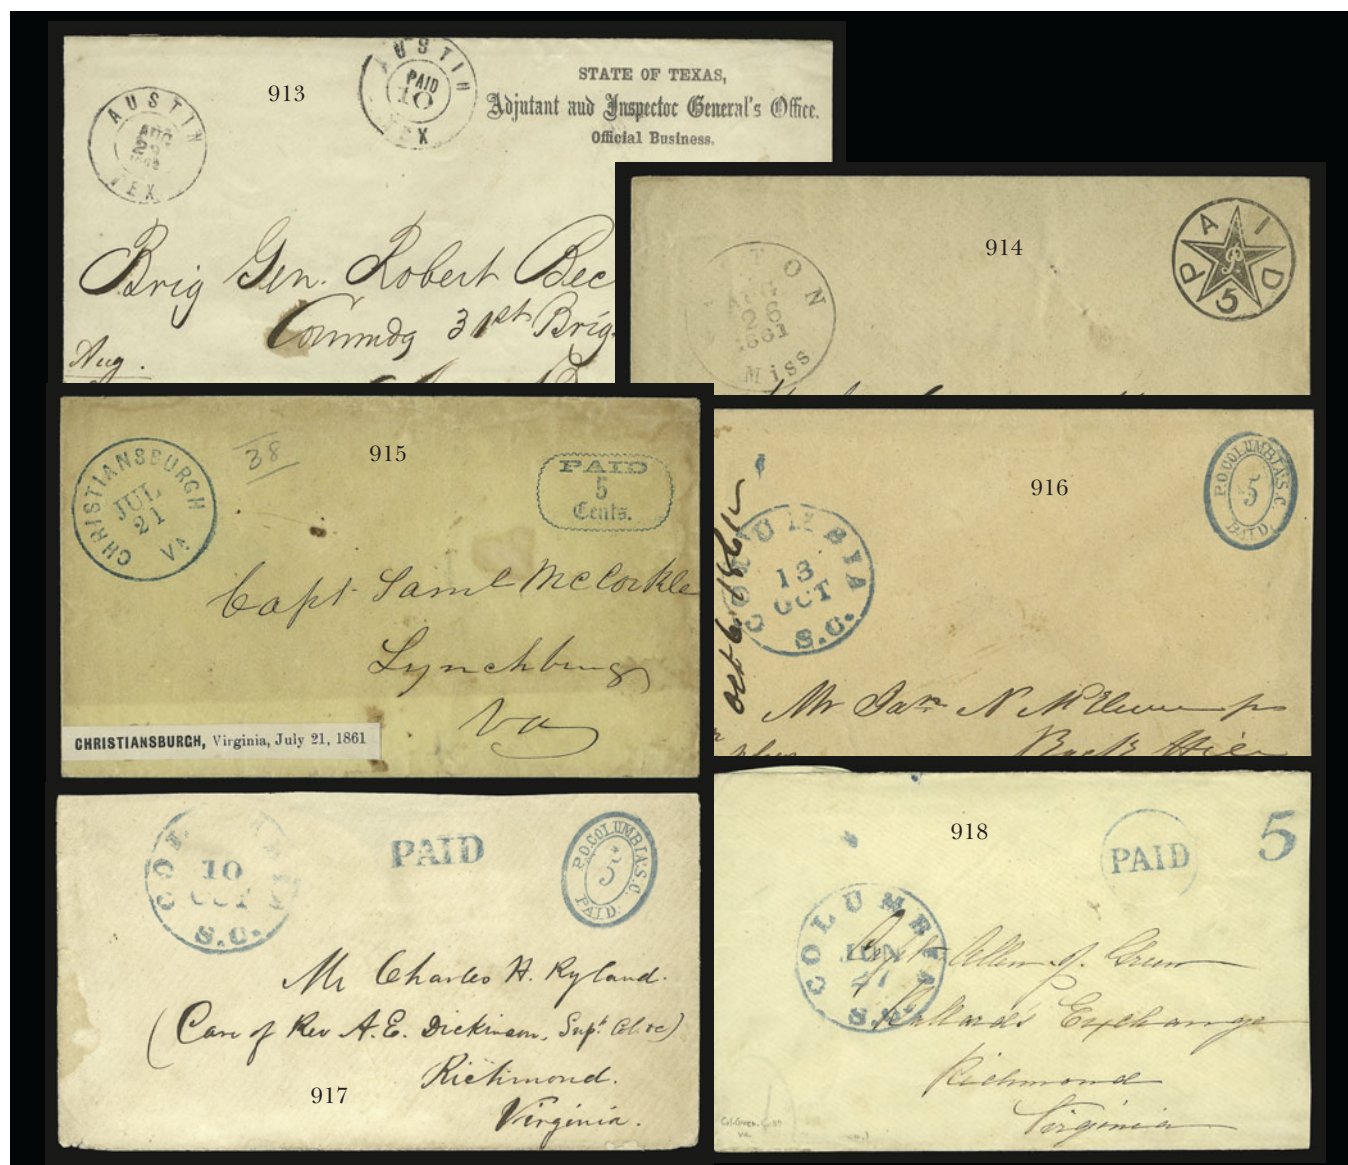 913
AUSTIN
AUG
TEX
AUSTIN
PAID
10
TEX
STATE OF TEXAS,
Adjutant and Inspector General's Office.
Official Business.
Brig Gen. Robert Bec
Commdg 31st Brig.
Aug.
914
TON
AUG
26
1861
Miss
PAID
P
5
915
CHRISTIANSBURGH
JUL
21
VA
38
PAID
5
Cents.
Capt Saml McCorkle
Lynchburg
Va
CHRISTIANSBURGH, Virginia, July 21, 1861
916
COLUMBIA
13
OCT
S.C.
P.O. COLUMBIA, S.C.
5
PAID
Mr Jas N
917
COL
10
OCT
S.C.
PAID
P.O. COLUMBIA, S.C.
5
PAID.
Mr Charles H. Ryland.
(Care of Rev A. E. Dickinson, Supt Col &c)
Richmond.
Virginia.
918
COLUMBIA
JUN
S.C.
PAID
5
Capt Allen J. Green
Ballards Exchange
Richmond
Virginia